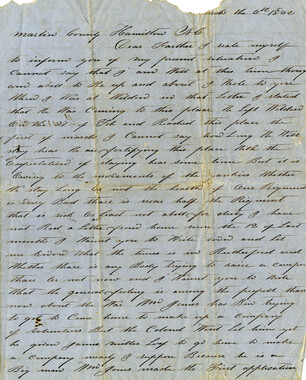 the 6th 1862
Martin County Hamilton N C
Dear Father I seate myself
to inform you of my present situation I
Cannot say that I am Well at this time though
am able to be up and about I wrote to you
When I was at Weldon in that I stated
that We Was Coming to this place We left Weldon
on the of Feb and Reached this place the
first of March I Cannot say how Long We Will
Stay hear We are fortyfying this place With the
Expectation of staying hear some time But it is
Owing to the movements of the Yankies Whether
We stay Long or not the health of Our Regiment
is Very Bad there is near half the Regiment
that is sick Or feast not able for duty I have
not Had a letter from home since the 12 of last
month I Want you to Write soon and let
me know What the times is in Rutherford and
Whether there is any Body trying to raise a company
there or not and I Want you to Write
What the general feeling among the people there
are about the War Wm Jones has Bin trying
to get to Come home to make up a company
of volunteers But the Colonel Wont let him yet
he given James Miller Loy to go home to make
a company mearly I suppose Because he is a
Big man Wm Jones made the First application